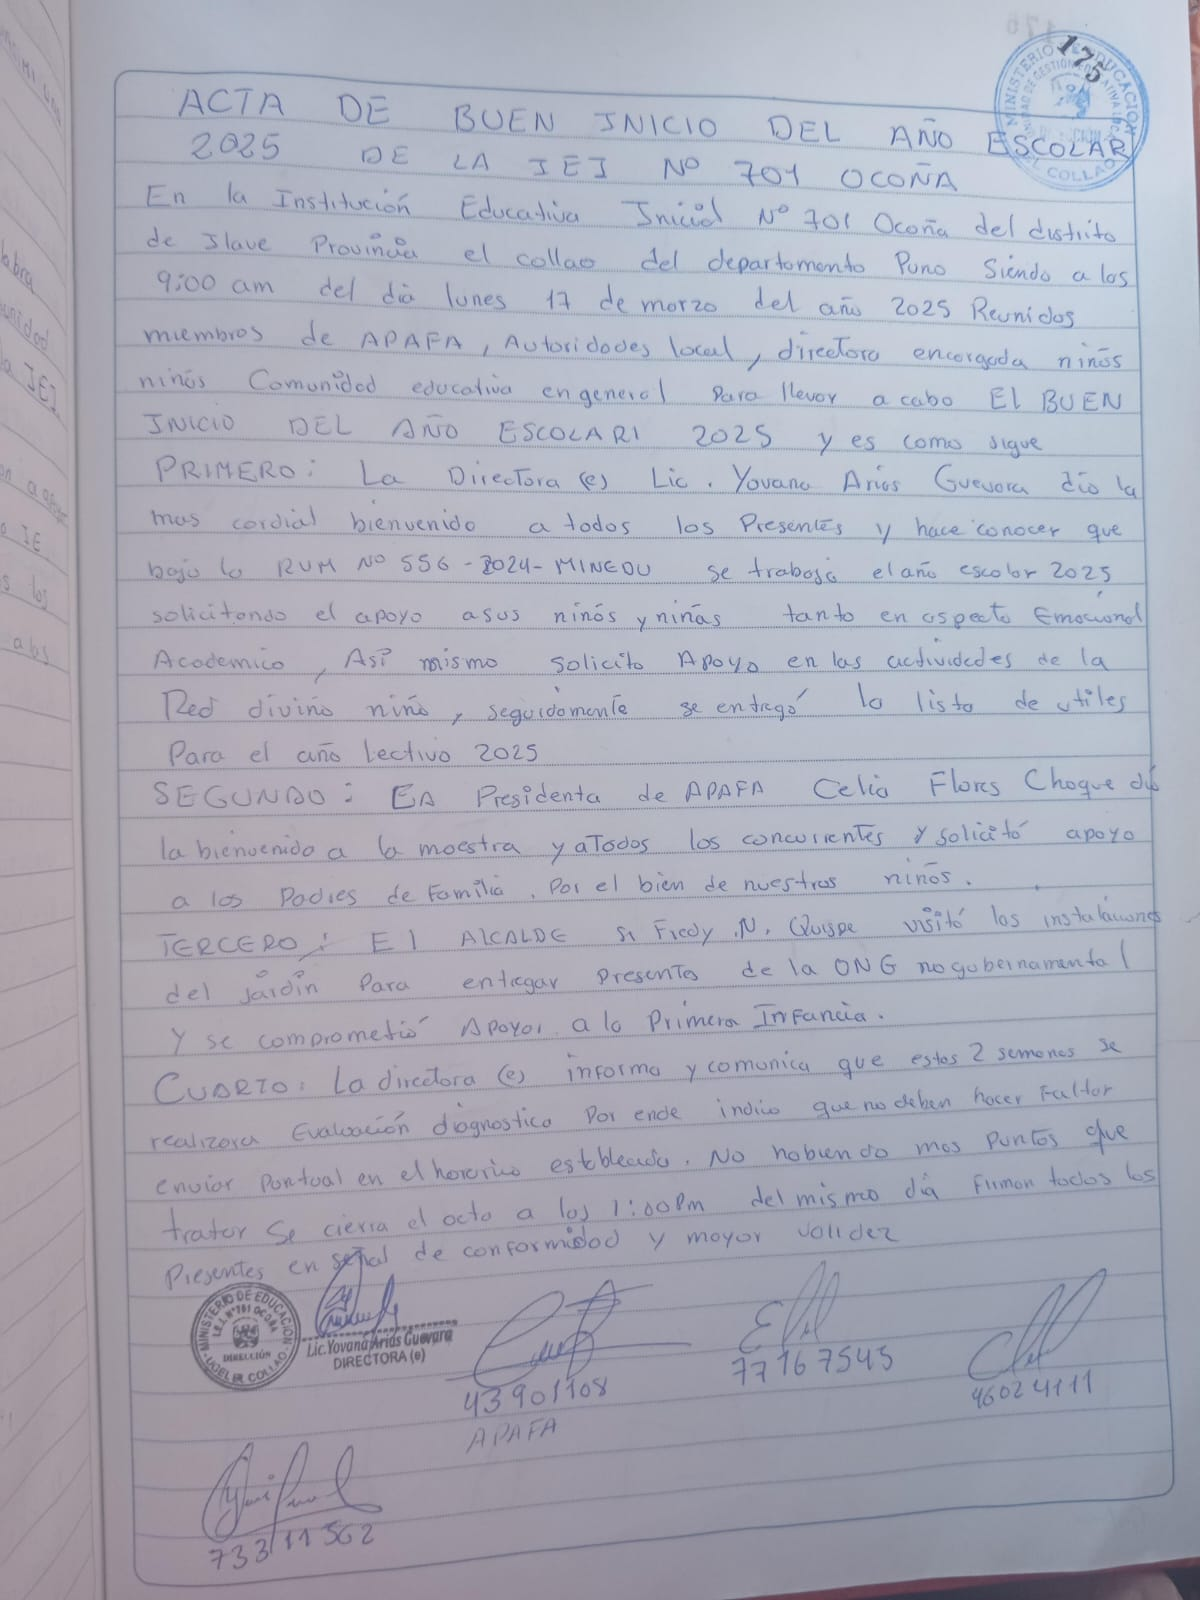 175
MINISTERIO DE EDUCACION
ACTA DE BUEN INICIO DEL AÑO ESCOLAR
2025 DE LA IEI Nº 701 OCOÑA
En la Institución Educativa Inicial Nº 701 Ocoña del distrito
de Ilave Provincia el collao del departamento Puno Siendo a las
9:00 am del día lunes 17 de marzo del año 2025 Reunidos
miembros de APAFA, Autoridades local, directora encargada niños
niñas Comunidad educativa en general Para llevar a cabo El BUEN
INICIO DEL AÑO ESCOLARI 2025 y es como sigue
PRIMERO: La Directora (e) Lic. Yovana Arias Guevara dio la
mas cordial bienvenido a todos los Presentes y hace conocer que
bajo la RVM Nº 556-2024-MINEDU se trabaja el año escolar 2025
solicitando el apoyo a sus niños y niñas tanto en aspecto Emocional
Academico, Asi mismo solicito Apoyo en las actividades de la
Red divino niño, seguidamente se entregó la lista de utiles
Para el año lectivo 2025
SEGUNDO: La Presidenta de APAFA Celia Flores Choque dió
la bienvenida a la maestra y a Todos los concurrentes y solicitó apoyo
a los Padres de Familia. Por el bien de nuestros niños.
TERCERO: El ALCALDE Sr Fredy N. Quispe visitó las instalaciones
del jardin Para entregar presentes de la ONG no gubernamental
Y se comprometió Apoyar a la Primera Infancia.
CUARTO: La directora (e) informa y comunica que estas 2 semanas se
realizara Evaluación diagnostica Por ende indico que no deben hacer Faltar
enviar Puntual en el horario establecido. No habiendo mas Puntos que
tratar Se cierra el acta a las 1:00Pm del mismo día Firman todos los
Presentes en señal de conformidad y mayor validez
MINISTERIO DE EDUCACION
I.E.I. Nº 701 OCOÑA
DIRECCIÓN
UGEL EL COLLAO
Lic. Yovana Arias Guevara
DIRECTORA (e)
43901108
APAFA
77167545
46024111
73311562